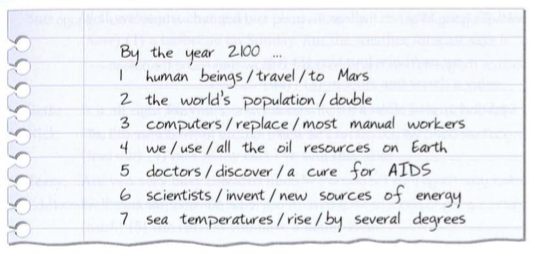 By the year 2100 ...
1 human beings / travel / to Mars
2 the world's population / double
3 computers / replace / most manual workers
4 we / use / all the oil resources on Earth
5 doctors / discover / a cure for AIDS
6 scientists / invent / new sources of energy
7 sea temperatures / rise / by several degrees